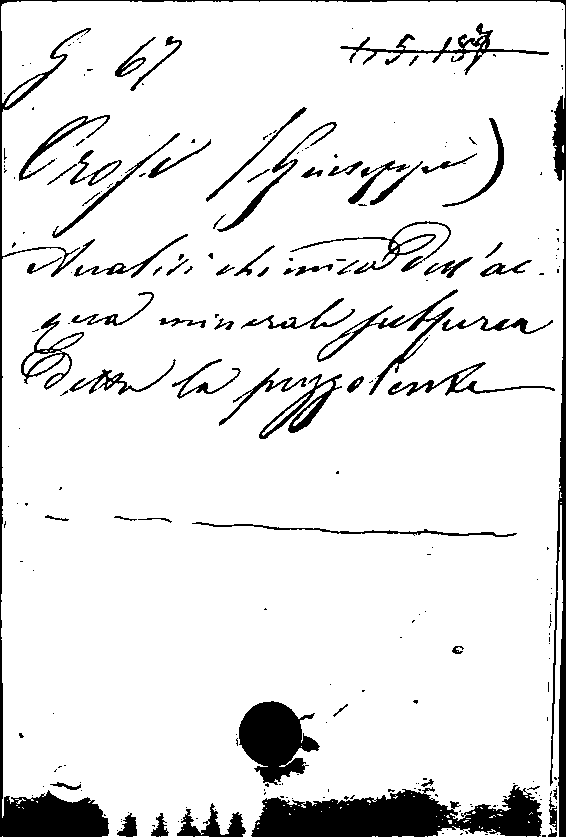 G. 67
Orosi (Giuseppe)
Analisi chimica dell'ac-
qua minerale sulfurea
detta la puzzolente